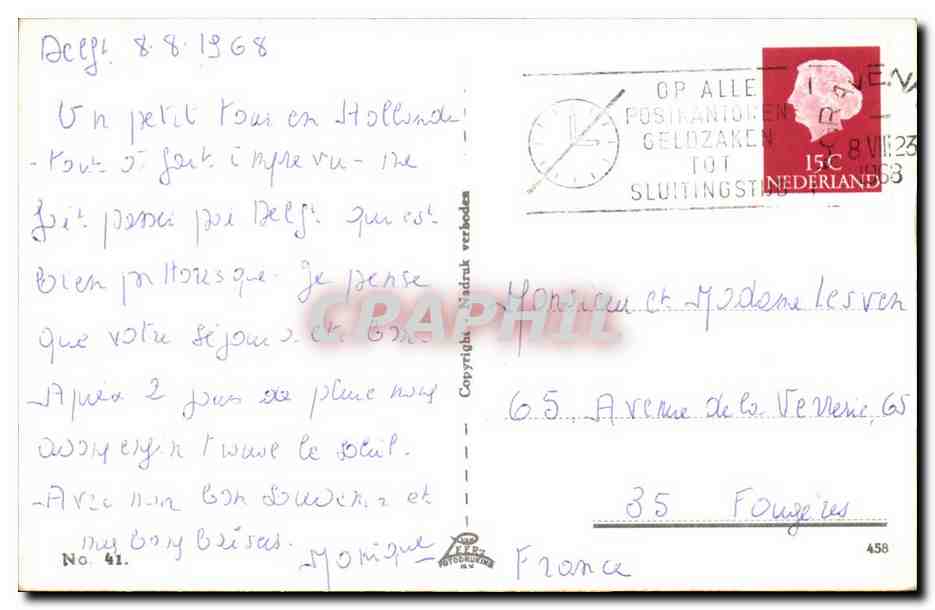 Delft 8.8.1968
Un petit tour en Hollande
- tout à fait imprevu - me
fait passer par Delft qui est
bien pittoresque. Je pense
que votre séjour est bon.
Après 2 jours de pluie nous
avons enfin trouvé le soleil.
Avec mon bon souvenir et
mes bons baisers.
Monique
No. 41.
Copyright - Nadruk verboden
VAN LEER'S
FOTODRUKIND
N.V.
OP ALLE
POSTKANTOREN
GELDZAKEN
TOT
SLUITINGSTIJD
'S GRAVENHA
8 VIII 23
1968
15 C
NEDERLAND
Monsieur et Madame Lesven
65 Avenue de la Verrerie, 65
35 Fougères
France
458
CPAPHIL